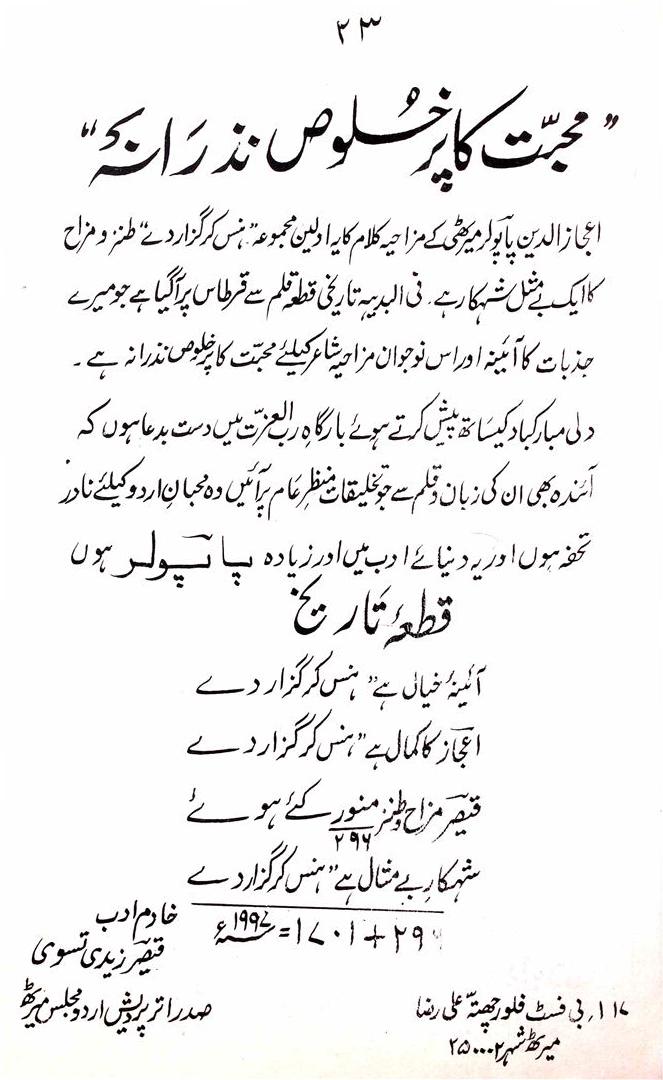 ۲۳
”محبّت کا پُر خُلوص نذرَانہ“
اعجاز الدین پاپولر میرٹھی کے مزاحیہ کلام کا یہ اولین مجموعہ ”ہنس کر گزار دے“ طنز و مزاح
کا ایک بے مثل شہکار ہے۔ فی البدیہہ تاریخی قطعہ قلم سے قرطاس پر آ گیا ہے جو میرے
جذبات کا آئینہ اور اس نوجوان مزاحیہ شاعر کیلئے محبّت کا پُر خلوص نذرانہ ہے ۔
دلی مبارکباد کیساتھ پیش کرتے ہوئے بارگاہِ رب العزّت میں دست بدعا ہوں کہ
آئندہ بھی ان کی زبان و قلم سے جو تخلیقات منظرِ عام پر آئیں وہ محبانِ اردو کیلئے نادر
تحفہ ہوں اور یہ دنیائے ادب میں اور زیادہ پاپولر ہوں
قطعۂ تاریخ
آئینۂ خیال ہے ”ہنس کر گزار دے
اعجاز کا کمال ہے ”ہنس کر گزار دے
قیصر مزاح و طنز منور کئے ہوئے
۲۹۶
شہکارِ بے مثال ہے ”ہنس کر گزار دے
۲۹۶+۱۷۰۱=۱۹۹۷ء
خادم ادب
قیصر زیدی تسوی
صدر اتر پردیش اردو مجلس میرٹھ
۱۱۷، بی فسٹ فلور چھتہ علی رضا
میرٹھ شہر ۲۵۰۰۰۲